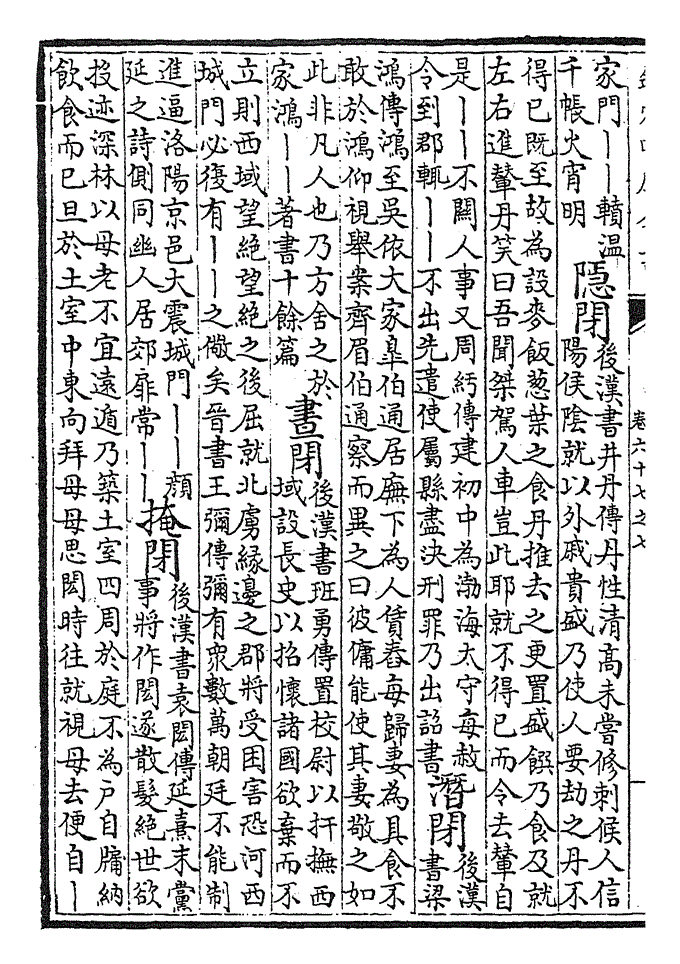 卷六十七之七
家門丨丨轒温
千帳火宵明
隱閉
後漢書井丹傳丹性清高未嘗修刺候人信
陽侯陰就以外戚貴盛乃使人要劫之丹不
得已既至故為設麥飯葱葉之食丹推去之更置盛饌乃食及就
左右進輦丹笑曰吾聞桀駕人車豈此耶就不得已而令去輦自
是丨丨不關人事又周紆傳建初中為渤海太守每赦
令到郡輒丨丨不出先遣使屬縣盡决刑罪乃出詔書
潛閉
後漢
書梁
鴻傳鴻至吳依大家臯伯通居廡下為人賃舂每歸妻為具食不
敢於鴻仰視舉案齊眉伯通察而異之曰彼傭能使其妻敬之如
此非凡人也乃方舍之於
家鴻丨丨著書十餘篇
晝閉
後漢書班勇傳置校尉以扞撫西
域設長史以招懷諸國欲棄而不
立則西域望絶望絶之後屈就北虜緣邊之郡將受困害恐河西
城門必復有丨丨之儆矣晉書王彌傳彌有衆數萬朝廷不能制
進逼洛陽京邑大震城門丨丨顔
延之詩側同幽人居郊扉常丨丨
掩閉
後漢書袁閎傳延熹末黨
事將作閎遂散髮絶世欲
投迹深林以母老不宜遠遁乃築土室四周於庭不為户自牖納
飲食而已旦於土室中東向拜母母思閎時往就視母去便自丨